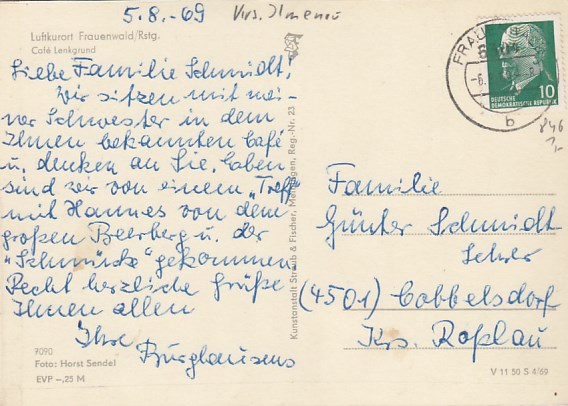 5.8.-69 Krs. Ilmenau
Luftkurort Frauenwald/Rstg.
Café Lenkgrund
Liebe Familie Schmidt!
Wir sitzen mit mei-
ner Schwester in dem
Ihnen bekannten Café
u. denken an Sie. Eben
sind wir von einem „Treff"
mit Hannes von dem
großen Beerberg u. der
„Schmücke" gekommen
Recht herzliche Grüße
Ihnen allen
Ihre
Burghausens
9090
Foto: Horst Sendel
EVP -,25 M
Kunstanstalt Straub & Fischer, Meiningen, Reg.-Nr. 23
FRAU
b
10
DEUTSCHE
DEMOKRATISCHE REPUBLIK
846
Familie
Günter Schmidt
Lehrer
(4501) Cobbelsdorf
Krs. Roßlau
V 11 50 S 4/69